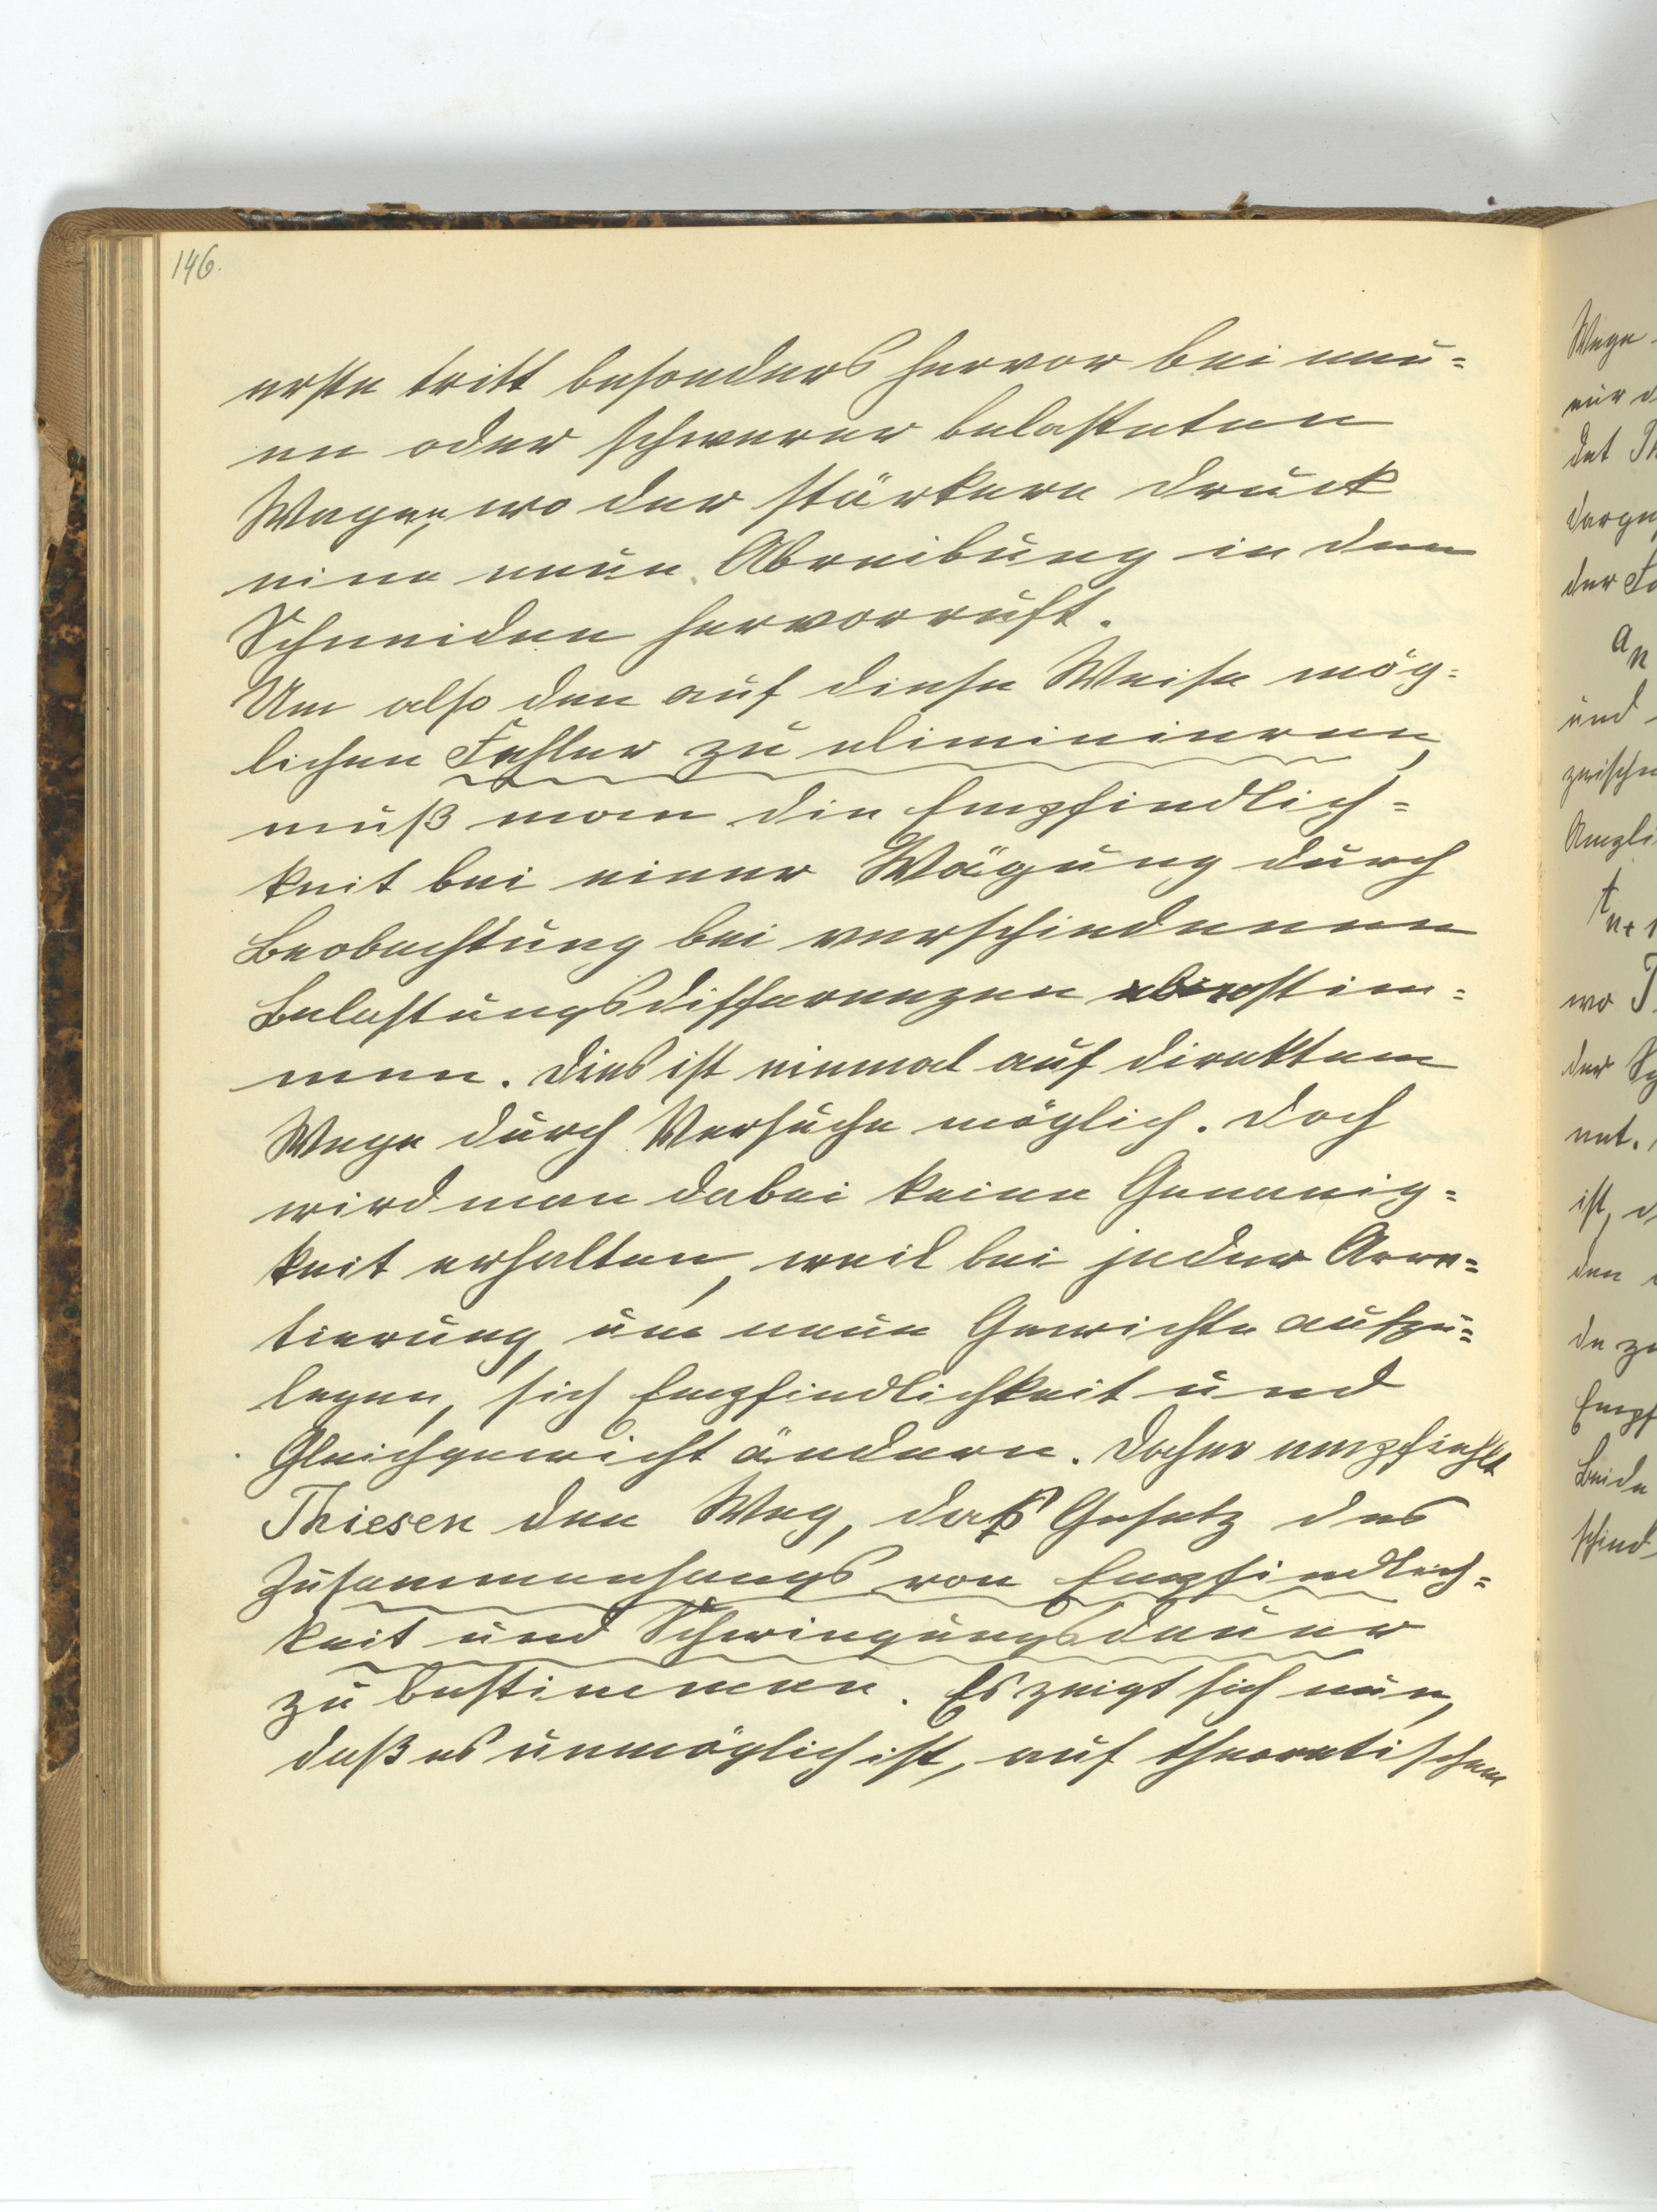 146.
erste tritt besonders hervor bei neu=
en oder schwerer belasteten
Wagen, wo der stärkere Druck
eine neue Abreibung in den
Schneiden hervorruft.
Um also den auf diese Weise mög=
lichen Fehler zu eliminieren,
muß man die Empfindlich=
keit bei einer Wägung durch
Beobachtung bei verschiedenen
Belastungsdifferenzen bestim=
men. Dies ist einmal auf direktem
Wege durch Versuche möglich. Doch
wird man dabei keine Genauig=
keit erhalten, weil bei jeder Arre=
tierung, um neue Gewichte aufzu=
legen, sich Empfindlichkeit und
Gleichgewicht ändern. Daher empfiehlt
Thiesen den Weg, das Gesetz des
Zusammenhangs von Empfindlich=
keit und Schwingungsdauer
zu bestimmen. Es zeigt sich nun,
daß es unmöglich ist, auf theoretischem
Wege
nur d
det Th
darge
der Fo
an
und
zwische
Ampli
tn+1
wo T
der Sch
net.
ist, d
den
de zu
Empf
Beide
schied